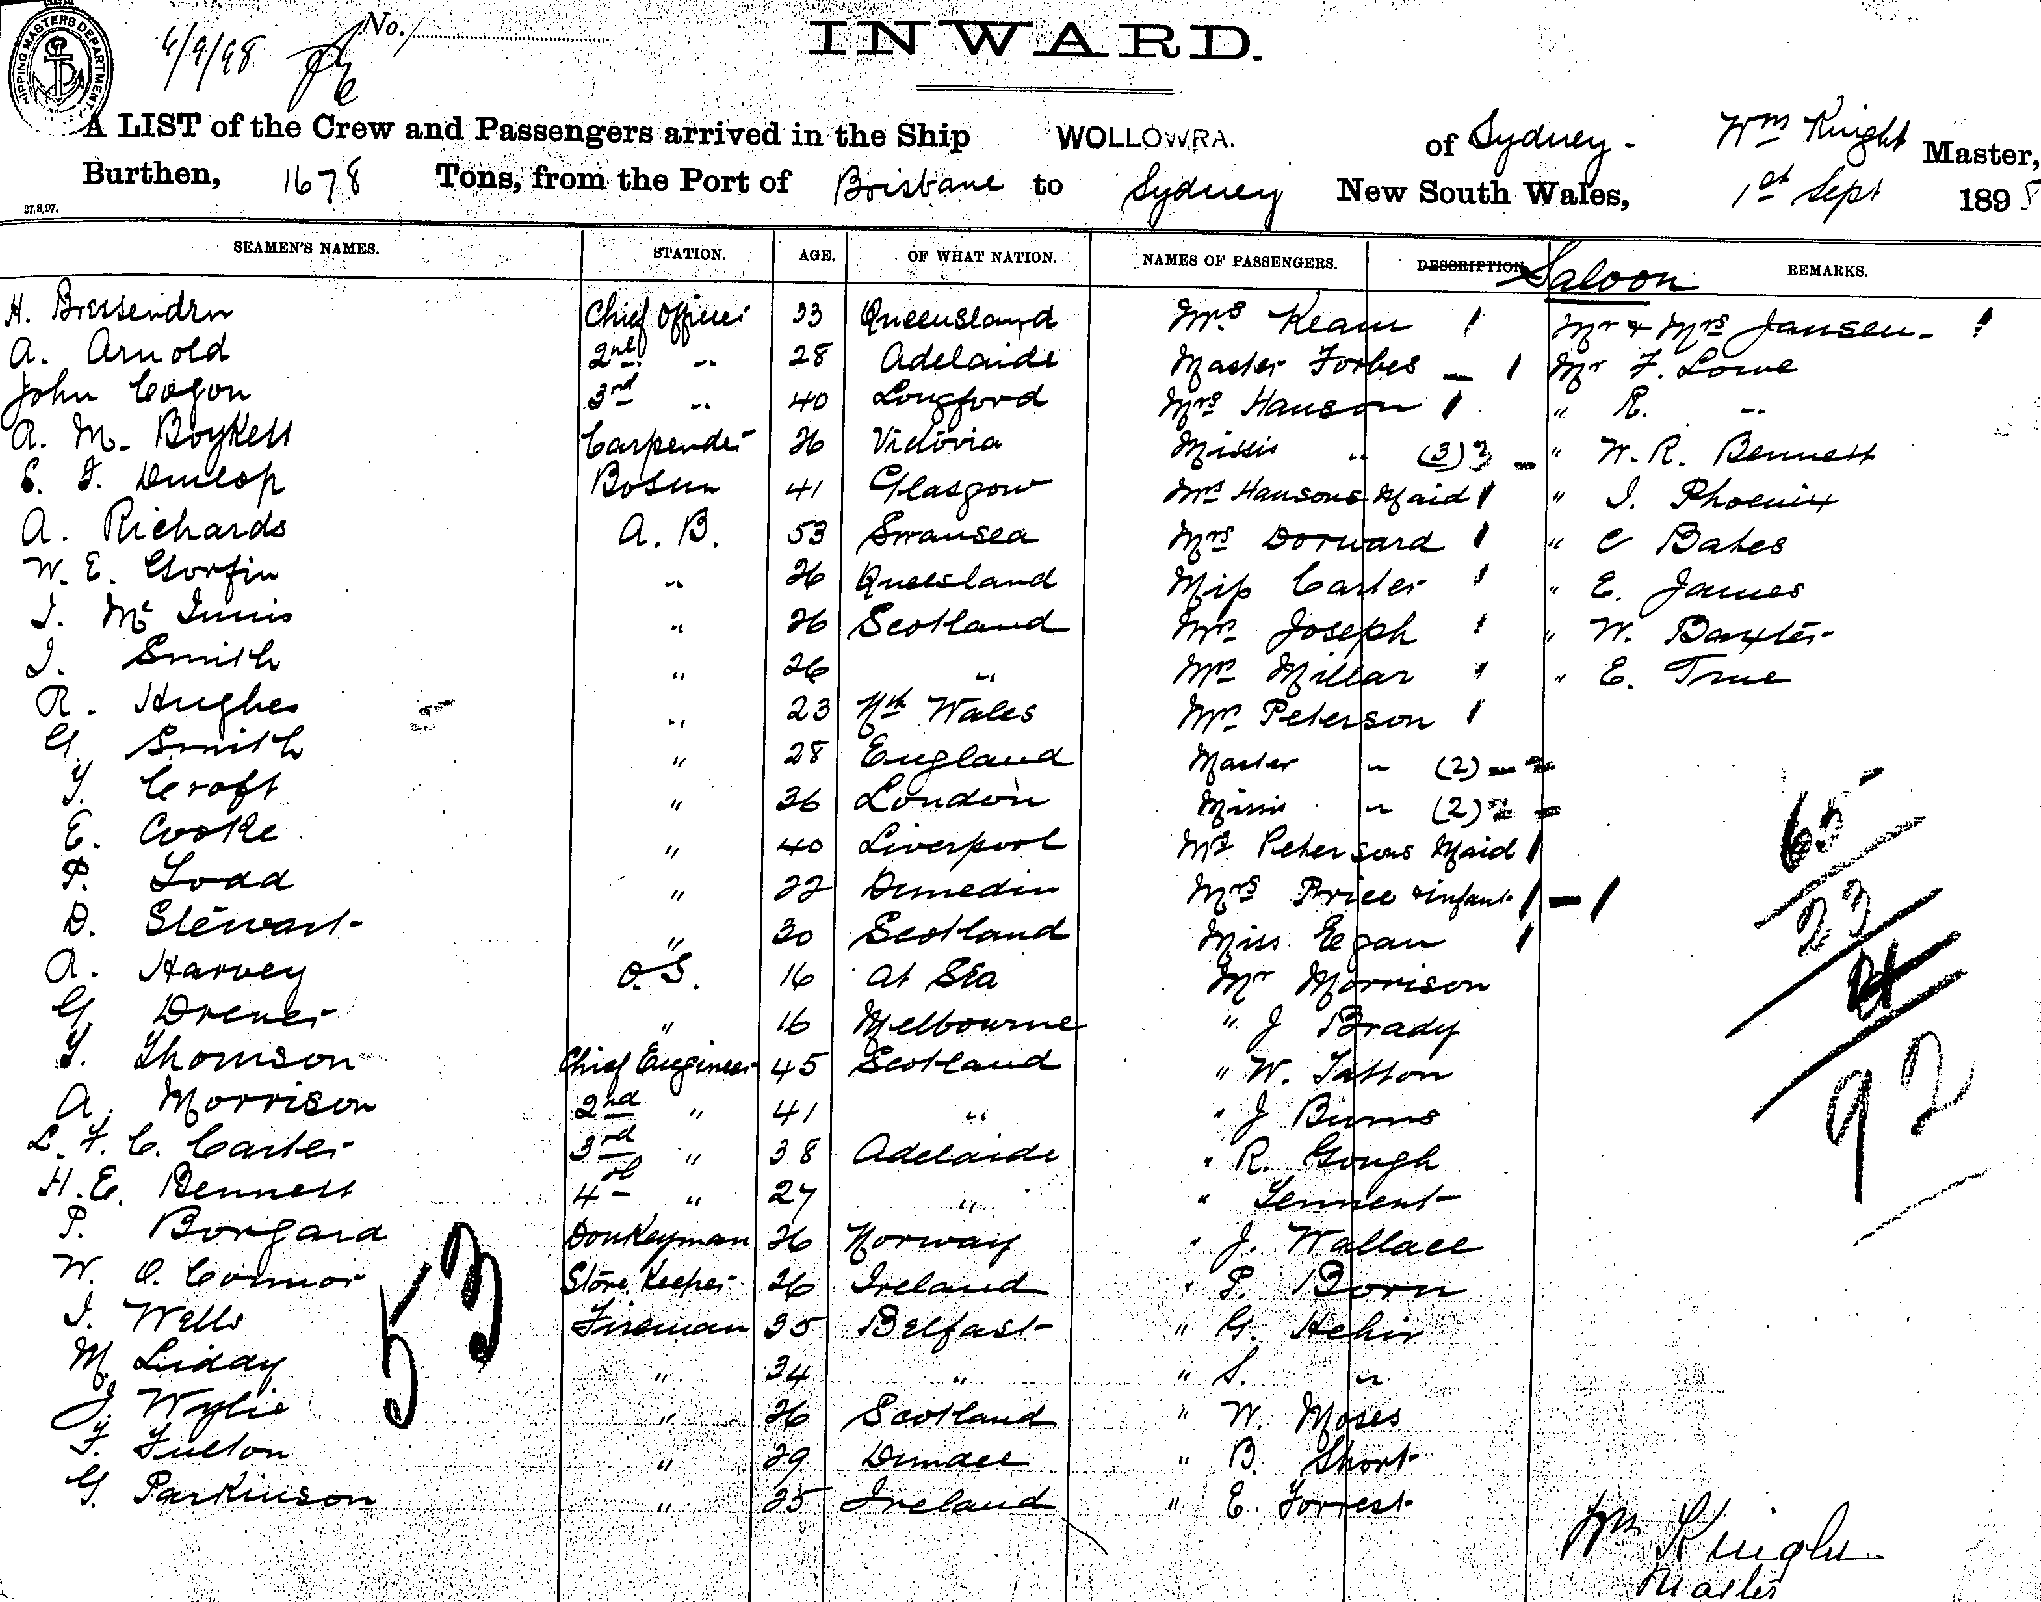 SHIPPING MASTERS DEPARTMENT.
6/9/98
No.
INWARD.
A LIST of the Crew and Passengers arrived in the Ship WOLLOWRA. of Sydney. Wm Knight Master,
Burthen, 1678 Tons, from the Port of Brisbane to Sydney New South Wales, 1st Sept 1898
27.8.97.
SEAMEN'S NAMES. STATION. AGE. OF WHAT NATION. NAMES OF PASSENGERS. DESCRIPTION Saloon REMARKS.
H. Chief Officer 33 Queensland Mrs Keam 1 Mr & Mrs Jansen - 1
A. Arnold 2nd " 28 Adelaide Master Forbes - 1 Mr F. Lowe
John Cogon 3rd " 40 Longford Mrs Hanson 1 " R. "
A. M. Boykett Carpender 26 Victoria Missis " (3) 3 - " W. R. Bennett
E. F. Dunlop Bosun 41 Glasgow Mrs Hansons Maid 1 " J. Phoenix
A. Richards A. B. 53 Swansea Mrs Dorward 1 " C Bates
W. E. Gorfin " 26 Queesland Miss Carter 1 " E. James
J. Mc Innis " 26 Scotland Mrs Joseph 1 " W. Baxter
J. Smith " 26 " Mrs Millar 1 " E. True
R. Hughes " 23 Nth Wales Mrs Peterson 1
G. Smith " 28 England Master " (2) - 2
T. Croft " 36 London Missis " (2) 2 -
E. Cooke " 40 Liverpool Mrs Petersons Maid 1
P. Todd " 22 Dunedin Mrs Price & infant 1 - 1
D. Stewart " 30 Scotland Miss Egan 1
A. Harvey O.S. 16 at Sea Mr Morrison
G Drener " 16 Melbourne " J Brady
T. Thomson Chief Engineer 45 Scotland " W. Tatton
A. Morrison 2nd " 41 " " J Burns
L. F. C. Carter 3rd " 38 Adelaide " R. Gough
H. E. Bennett 4th " 27 " " Tennent
P. Borgard Donkeyman 26 Norway " J. Wallace
W. O. Connor Store Keeper 26 Ireland " P. Born
J. Wells Fireman 35 Belfast " G. Hehir
M. Liddy " 34 " " S. "
J. Wylie " 26 Scotland " W. Moses
F. Fulton " 29 Dundee " B. Short
G. Parkinson " 25 Ireland " E. Forrest
53
65
23
4
92
Wm Knight
Master